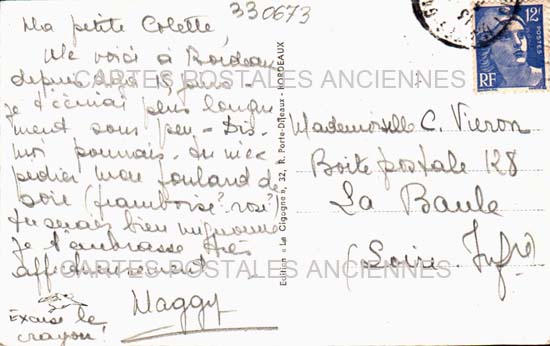 330673
Ma petite Colette,
Me voici à Bordeaux
depuis déjà 15 jours -
je t'écrirai plus longue
ment sous peu - Dis-
moi pourrais-tu m'ex
pédier mon foulard de
soie (framboise? rose?)
tu serais bien mignonne
je t'embrasse très
affectueusement
Maggy
Excuse le
crayon!
Edition « La Cigogne », 32, R. Porte-Dijeaux - BORDEAUX
12F
POSTES
RF
Mademoiselle C. Vieron
Boite postale 128
La Baule
(Loire Infre)
CARTES POSTALES ANCIENNES
CARTES POSTALES ANCIENNES